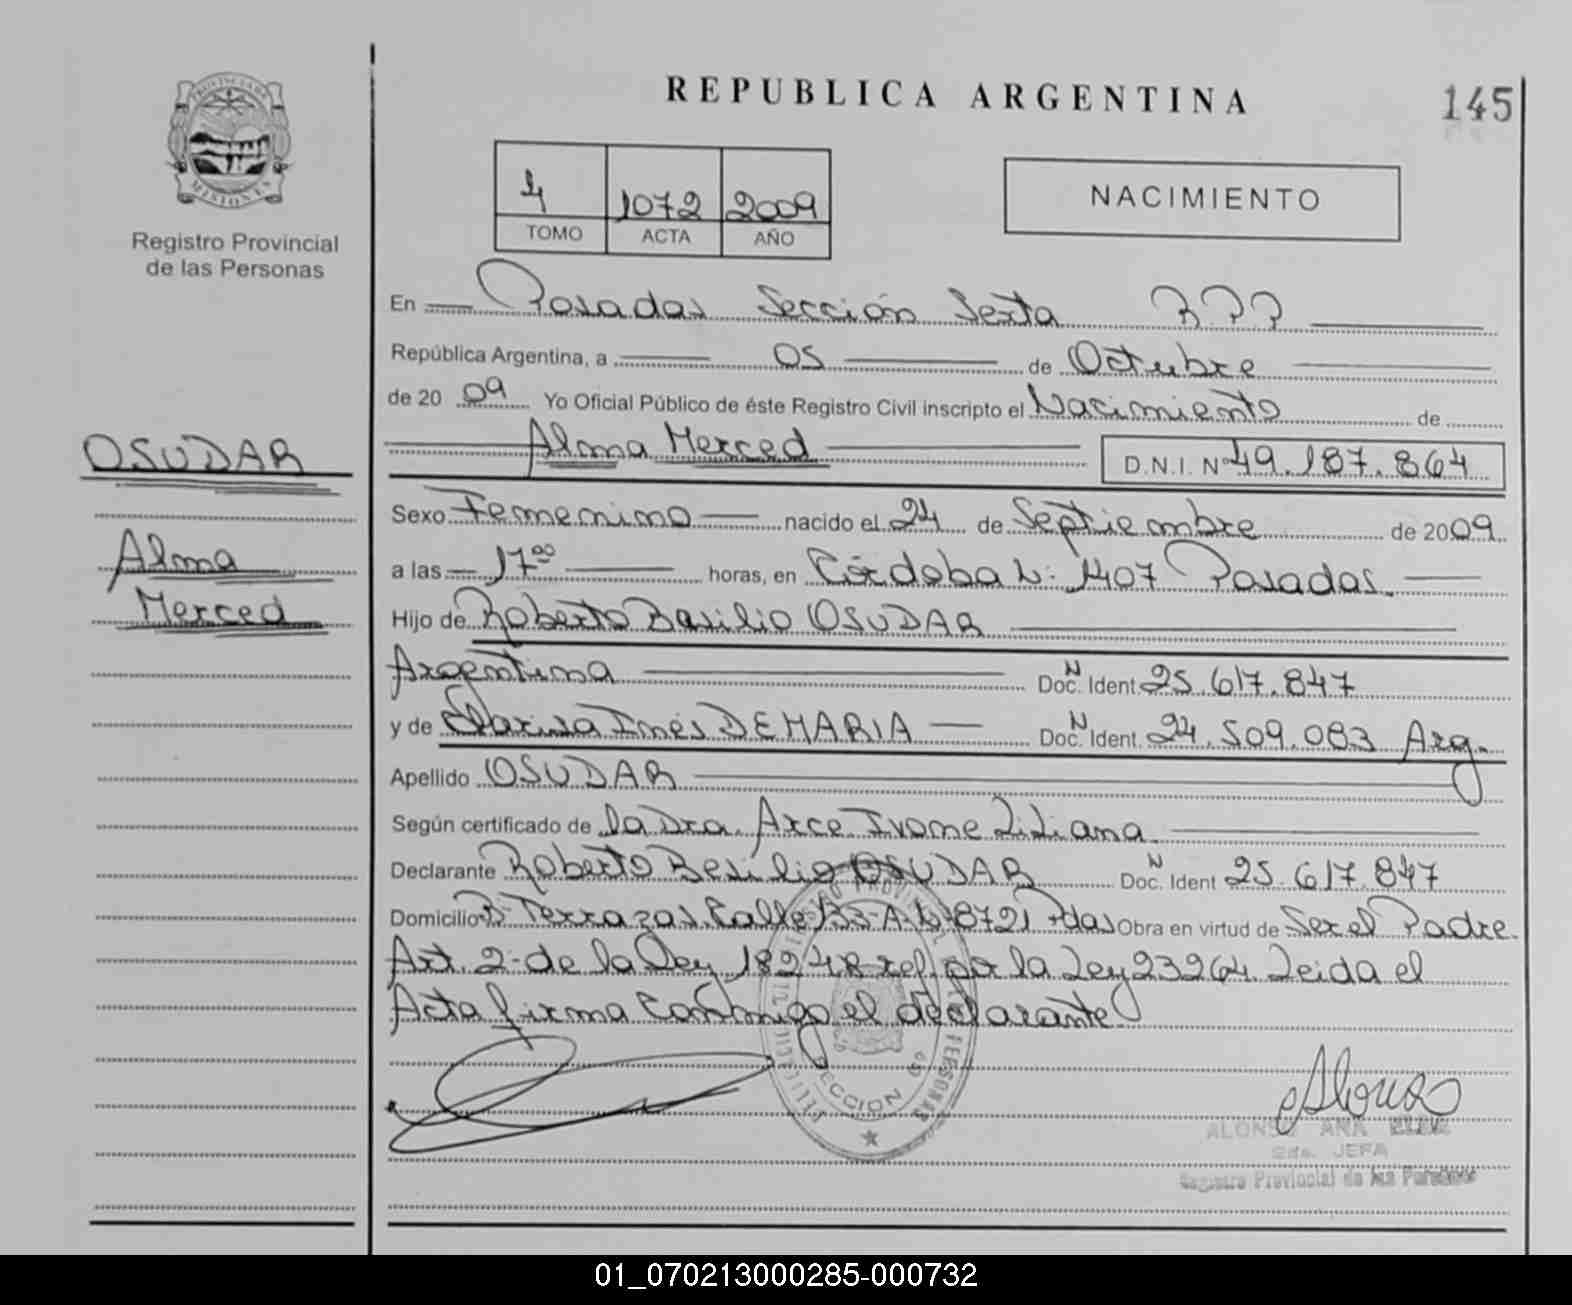 REPUBLICA ARGENTINA
145
PROVINCIA DE MISIONES
Registro Provincial
de las Personas
4 1072 2009
TOMO ACTA AÑO
NACIMIENTO
En Posadas Sección Sexta R.P.P
República Argentina, a 05 de Octubre
de 2009 Yo Oficial Público de éste Registro Civil inscripto el Nacimiento de
Alma Merced D.N.I. Nº 49.187.864
OSUDAR
Alma
Merced
Sexo Femenino nacido el 24 de Septiembre de 2009
a las 17⁰⁰ horas, en Córdoba N: 1407 Posadas.
Hijo de Roberto Basilio OSUDAR
Argentina Doc. N Ident. 25.617.847
y de Marisa Inés DEMARIA Doc. N Ident. 24.509.083 Arg.
Apellido OSUDAR
Según certificado de la Dra. Arce Ivone Liliana
Declarante Roberto Basilio OSUDAR Doc. N Ident 25.617.847
Domicilio Bº Terrazas, Calle 133-A-N-8721 Pdas Obra en virtud de Ser el Padre.
Art. 2- de la Ley 18248 ref. por la Ley 23264. Leida el
Acta firma Conmigo el declarante
SECCION 6º
PERSONAS
Alonso
ALONSO ANA ELSA
2da. JEFA
Registro Provincial de las Personas
01_070213000285-000732